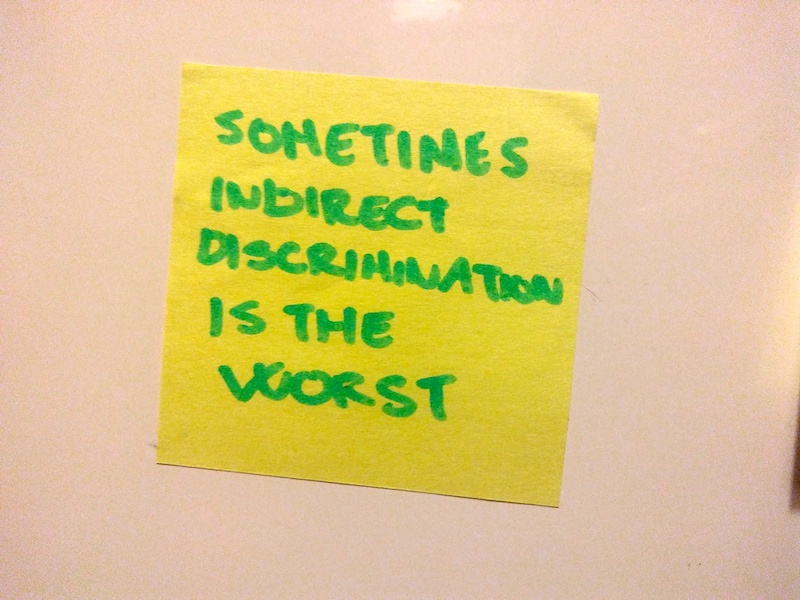 SOMETIMES
INDIRECT
DISCRIMINATION
IS THE
WORST